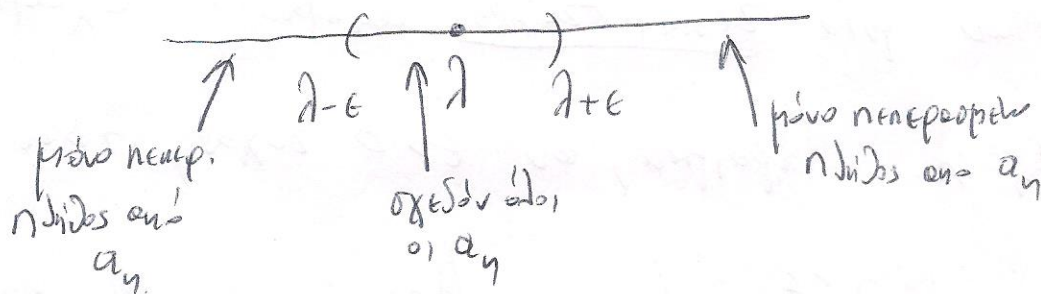 λ-ε λ λ+ε
μόνο πεπερ.
πλήθος από
αₙ
σχεδόν όλοι
οι αₙ
μόνο πεπερασμένο
πλήθος από αₙ